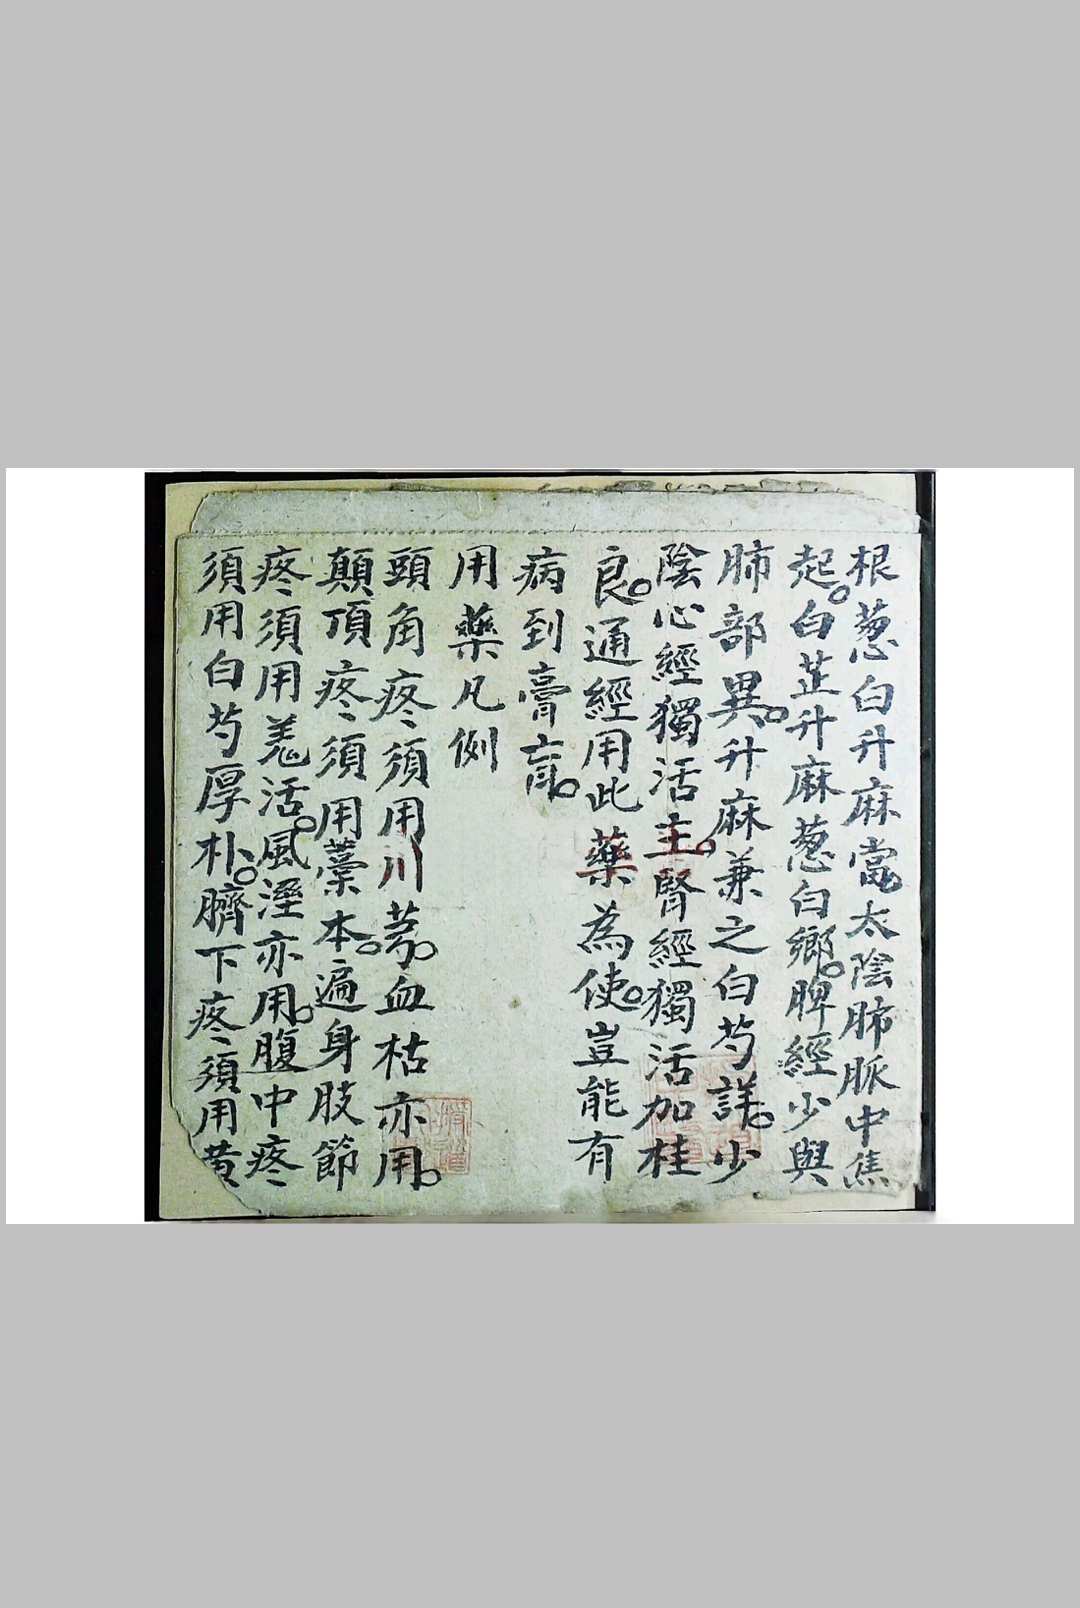 根葱白升麻當太陰肺脈中焦
起。白芷升麻葱白鄉。脾經少與
肺部異。升麻兼之白芍詳。少
陰心經獨活主。腎經獨活加桂
良。通經用此藥為使。豈能有
病到膏肓。
用藥凡例
頭角疼須用川芎。血枯亦用。
顛頂疼須用藁本。遍身肢節
疼須用羗活。風溼亦用。腹中疼
須用白芍厚朴。臍下疼須用黄